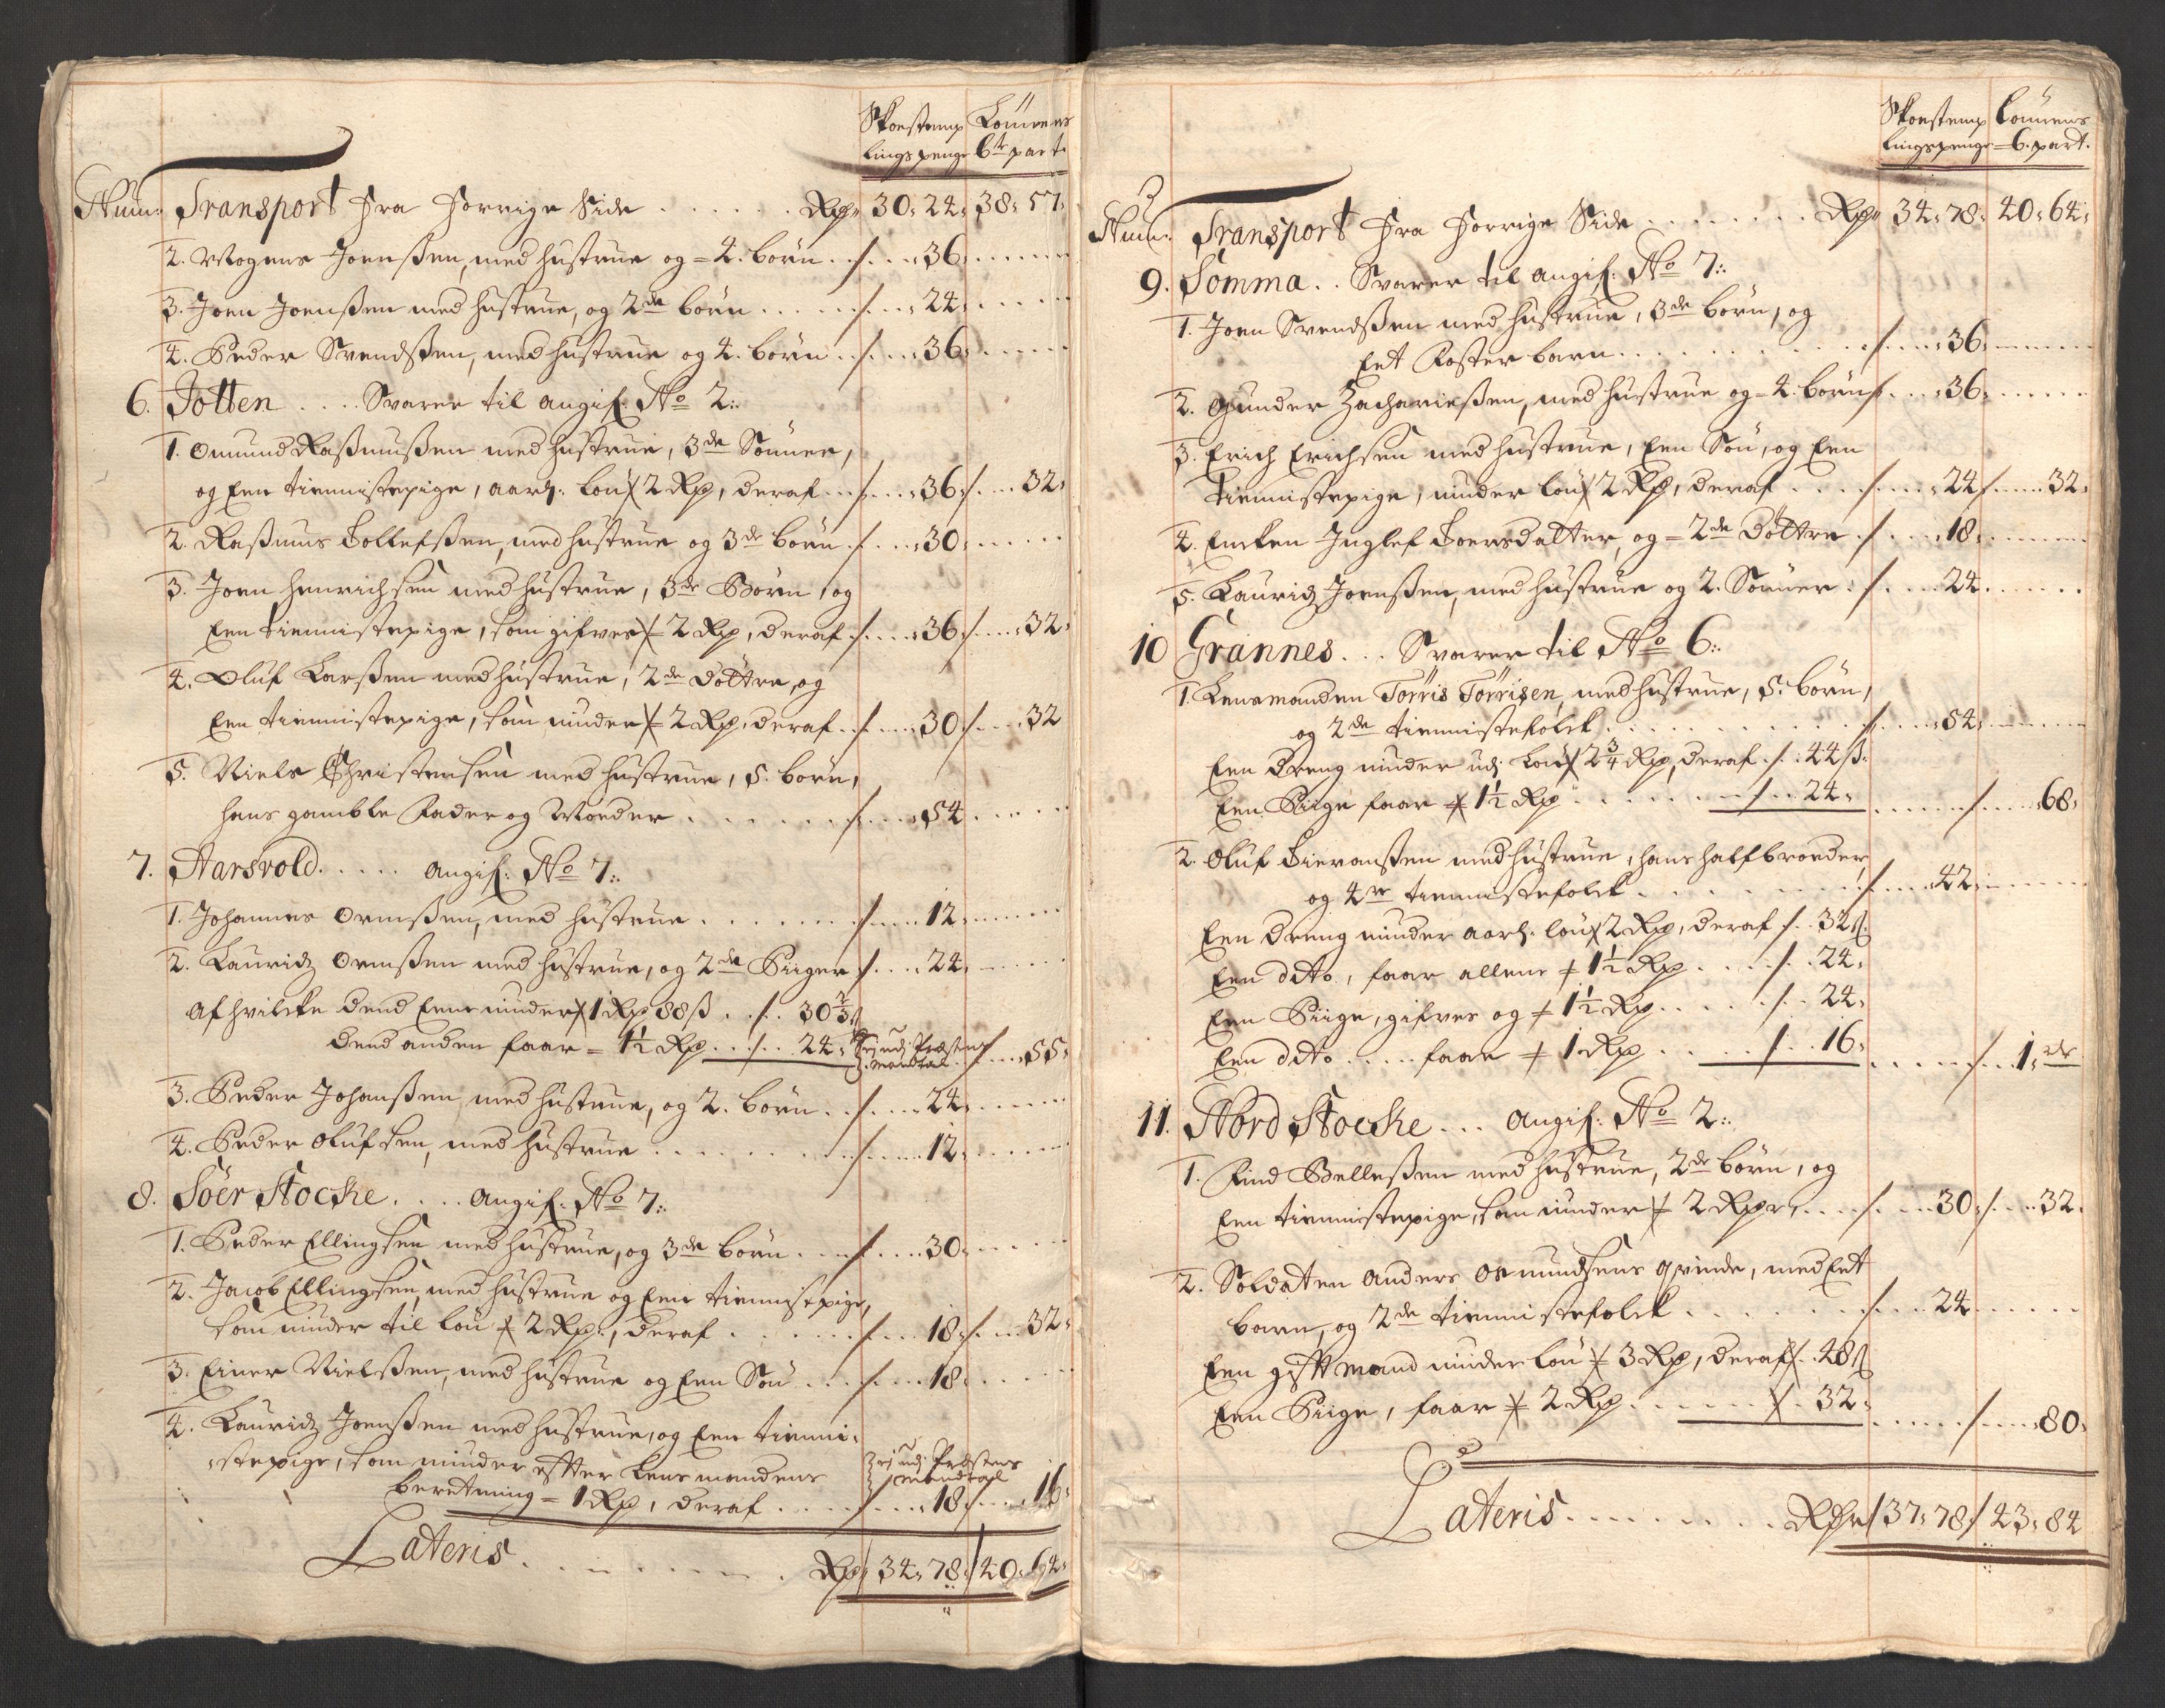 Skoestemp Lönnens
lingspenge 6te part.
Num: Transport fra forrige Side . . . . . Rd 30: 24: 38: 57:
2. Mogens Joensßen, med hustrue og 4. börn . . 36:
3. Joen Joensßen med hustrue, og 2de börn . . . 24:
4. Peder Svendsßen, med hustrue og 4. börn . . 36:
6. Jotten . . . . Svarer til angif: No 2:
1. Omund Rasmusßen med hustrue, 3de Sönner,
og Een tiennistepige, aarl: lön 2 Rd, deraf . . 36: 32:
2. Rasmus Tollefsßen, med hustrue og 3de börn . . 30:
3. Joen Henrichsen med hustrue, 3de Börn, og
Een tiennistepige, som gifves 2 Rd, deraf . . 36: 32:
4. Oluf Larsßen med hustrue, 2de döttre, og
Een tiennistepige, som niuder 2 Rd, deraf . . 30: 32
5. Niels Christensen med hustrue, 5. börn,
hans gamble Fader og Moeder . . . . . 54
7. Aarsvold . . . . . angif: No 7:
1. Johannes Ormsßen, med hustrue . . . . . 12:
2. Lauridz Ormsßen med hustrue, og 2de Piiger . . 24:
Af hvilcke dend Eene niuder 1 Rd 88 ß . . 30 2/3 ß
dend anden faar = 1½ Rd . . . 24: Ej udj Præstens mandtal . . 55:
3. Peder Johansßen, med hustrue, og 2. börn . . 24:
4. Peder Olufsen, med hustrue . . . . . 12:
8. Söer Stocke . . . . angif: No 7:
1. Peder Ellingsen med hustrue, og 3de börn . . . 30:
2. Jacob Ellingsen, med hustrue og Een tiennistepige,
som niuder til lön 2 Rd, deraf . . . . . 18: 32:
3. Einer Nielsßen, med hustrue og Een Sön . . . 18:
4. Lauridz Joensßen med hustrue, og Een tienni:
stepige, som niuder efter Lensmandens Ej udj Præstens
beretning = 1 Rd, deraf . . . . mandtal 18: 16:
Lateris . . . . . . Rd 34: 78: 40: 64:
Skoestemp Lönnens
lingspenge 6. part.
3
Num: Transport fra forrige Side . . . . . Rd 34: 78: 40: 64:
9. Somma . . Svarer til angif: No 7:
1. Joen Svendsßen med hustrue, 3de börn, og
Eet Foster barn . . . . . 36:
2. Gunder Zachariesßen, med hustrue og 4. börn . . 36:
3. Erich Erichsen med hustrue, Een Sön, og Een
tiennistepige, niuder lön 2 Rd, deraf . . . 24 32:
4. Encken Inglef Toersdatter, og 2de Döttre . . 18:
5. Lauridz Joensßen, med hustrue og 2. Sönner . . 24
10 Grannes . . . Svarer til No 6:
1. Lensmanden Törris Törrisen, med hustrue, 5. börn,
og 2de tiennistefolck . . . . . 54:
Een dreng niuder udj lön 2 3/4 Rd, deraf . . 44 ß.
Een Piige faar 1½ Rd . . . . . 24: . . . 68:
2. Oluf Siversßen med hustrue, hans halfbroeder,
og 4re tiennistefolck . . . . . 42:
Een dreng niuder aarl: lön 2 Rd, deraf . . 32 ß.
Een dito, faar allene 1½ Rd . . . . 24:
Een Piige, gifves og 1½ Rd . . . . 24:
Een dito . . . . faar 1 Rd . . . . 16: . . . 1:
11. Nord Stocke . . . angif: No 2:
1. Find Pellesßen med hustrue, 2de börn, og
Een tiennistepige, som niuder 2 Rdr, . . . 30: 32:
2. Soldaten Anders Omundsens qvinde, med Eet
barn, og 2de tiennistefolck . . . . . 24
Een gift mand niuder lön 3 Rd, deraf . 48 ß
Een Piige, faar 2 Rd . . . . . 32: . . . 80:
Lateris . . . . . . Rdr 37: 78: 43: 84